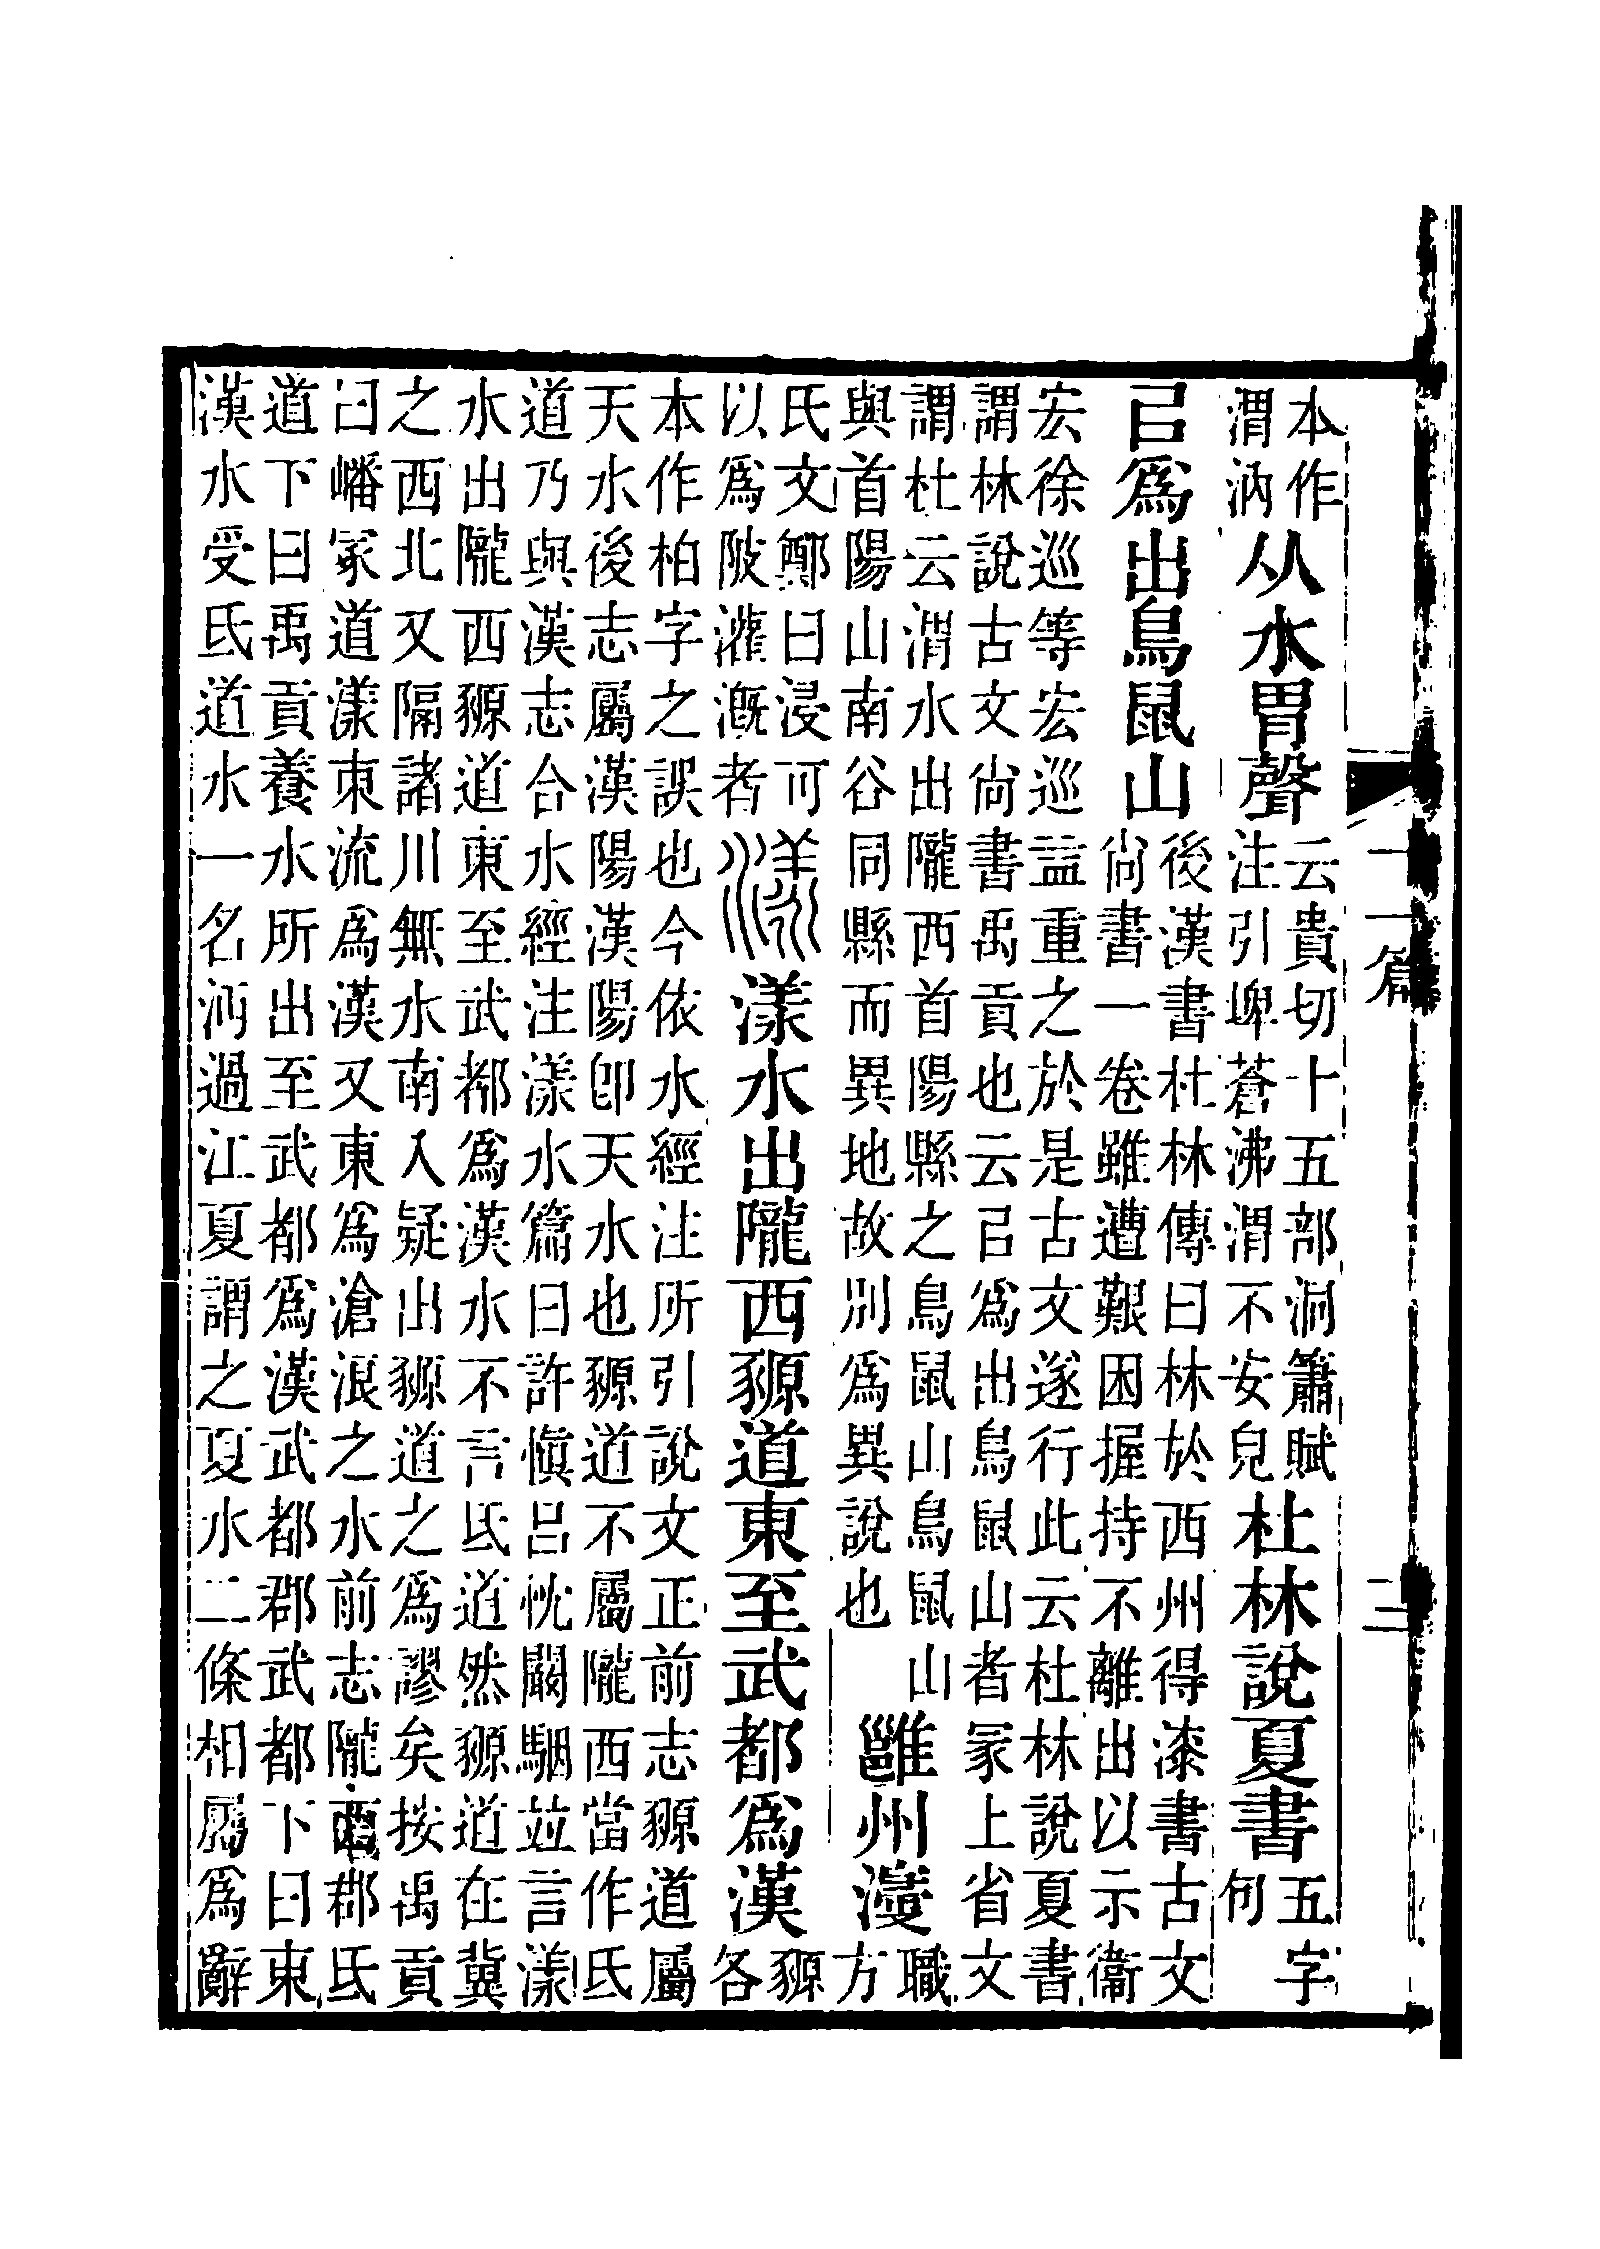 本作
渭汭
从水胃聲
云貴切十五部洞簫賦
注引埤蒼沸渭不安皃
杜林說夏書
五字
句
㠯爲出鳥鼠山
後漢書杜林傳曰林於西州得漆書古文
尙書一卷雖遭艱困握持不離出以示衞
宏徐巡等宏巡益重之於是古文遂行此云杜林說夏書
謂林說古文尙書禹貢也云㠯爲出鳥鼠山者冡上省文
謂杜云渭水出隴西首陽縣之鳥鼠山鳥鼠山
與首陽山南谷同縣而異地故別爲異說也
雝州濅
職
方
氏文鄭曰浸可
以爲陂灌漑者
漾
漾水出隴西豲道東至武都爲漢
豲
各
本作柏字之誤也今依水經注所引說文正前志豲道屬
天水後志屬漢陽漢陽卽天水也豲道不屬隴西當作氐
道乃與漢志合水經注漾水篇曰許愼呂忱闞駰竝言漾
水出隴西豲道東至武都爲漢水不言氐道然豲道在冀
之西北又隔諸川無水南入疑出豲道之爲謬矣按禹貢
曰嶓冢道漾東流爲漢又東爲滄浪之水前志隴西郡氐
道下曰禹貢養水所出至武都爲漢武都郡武都下曰東
漢水受氐道水一名沔過江夏謂之夏水二條相屬爲辭
十一篇
三